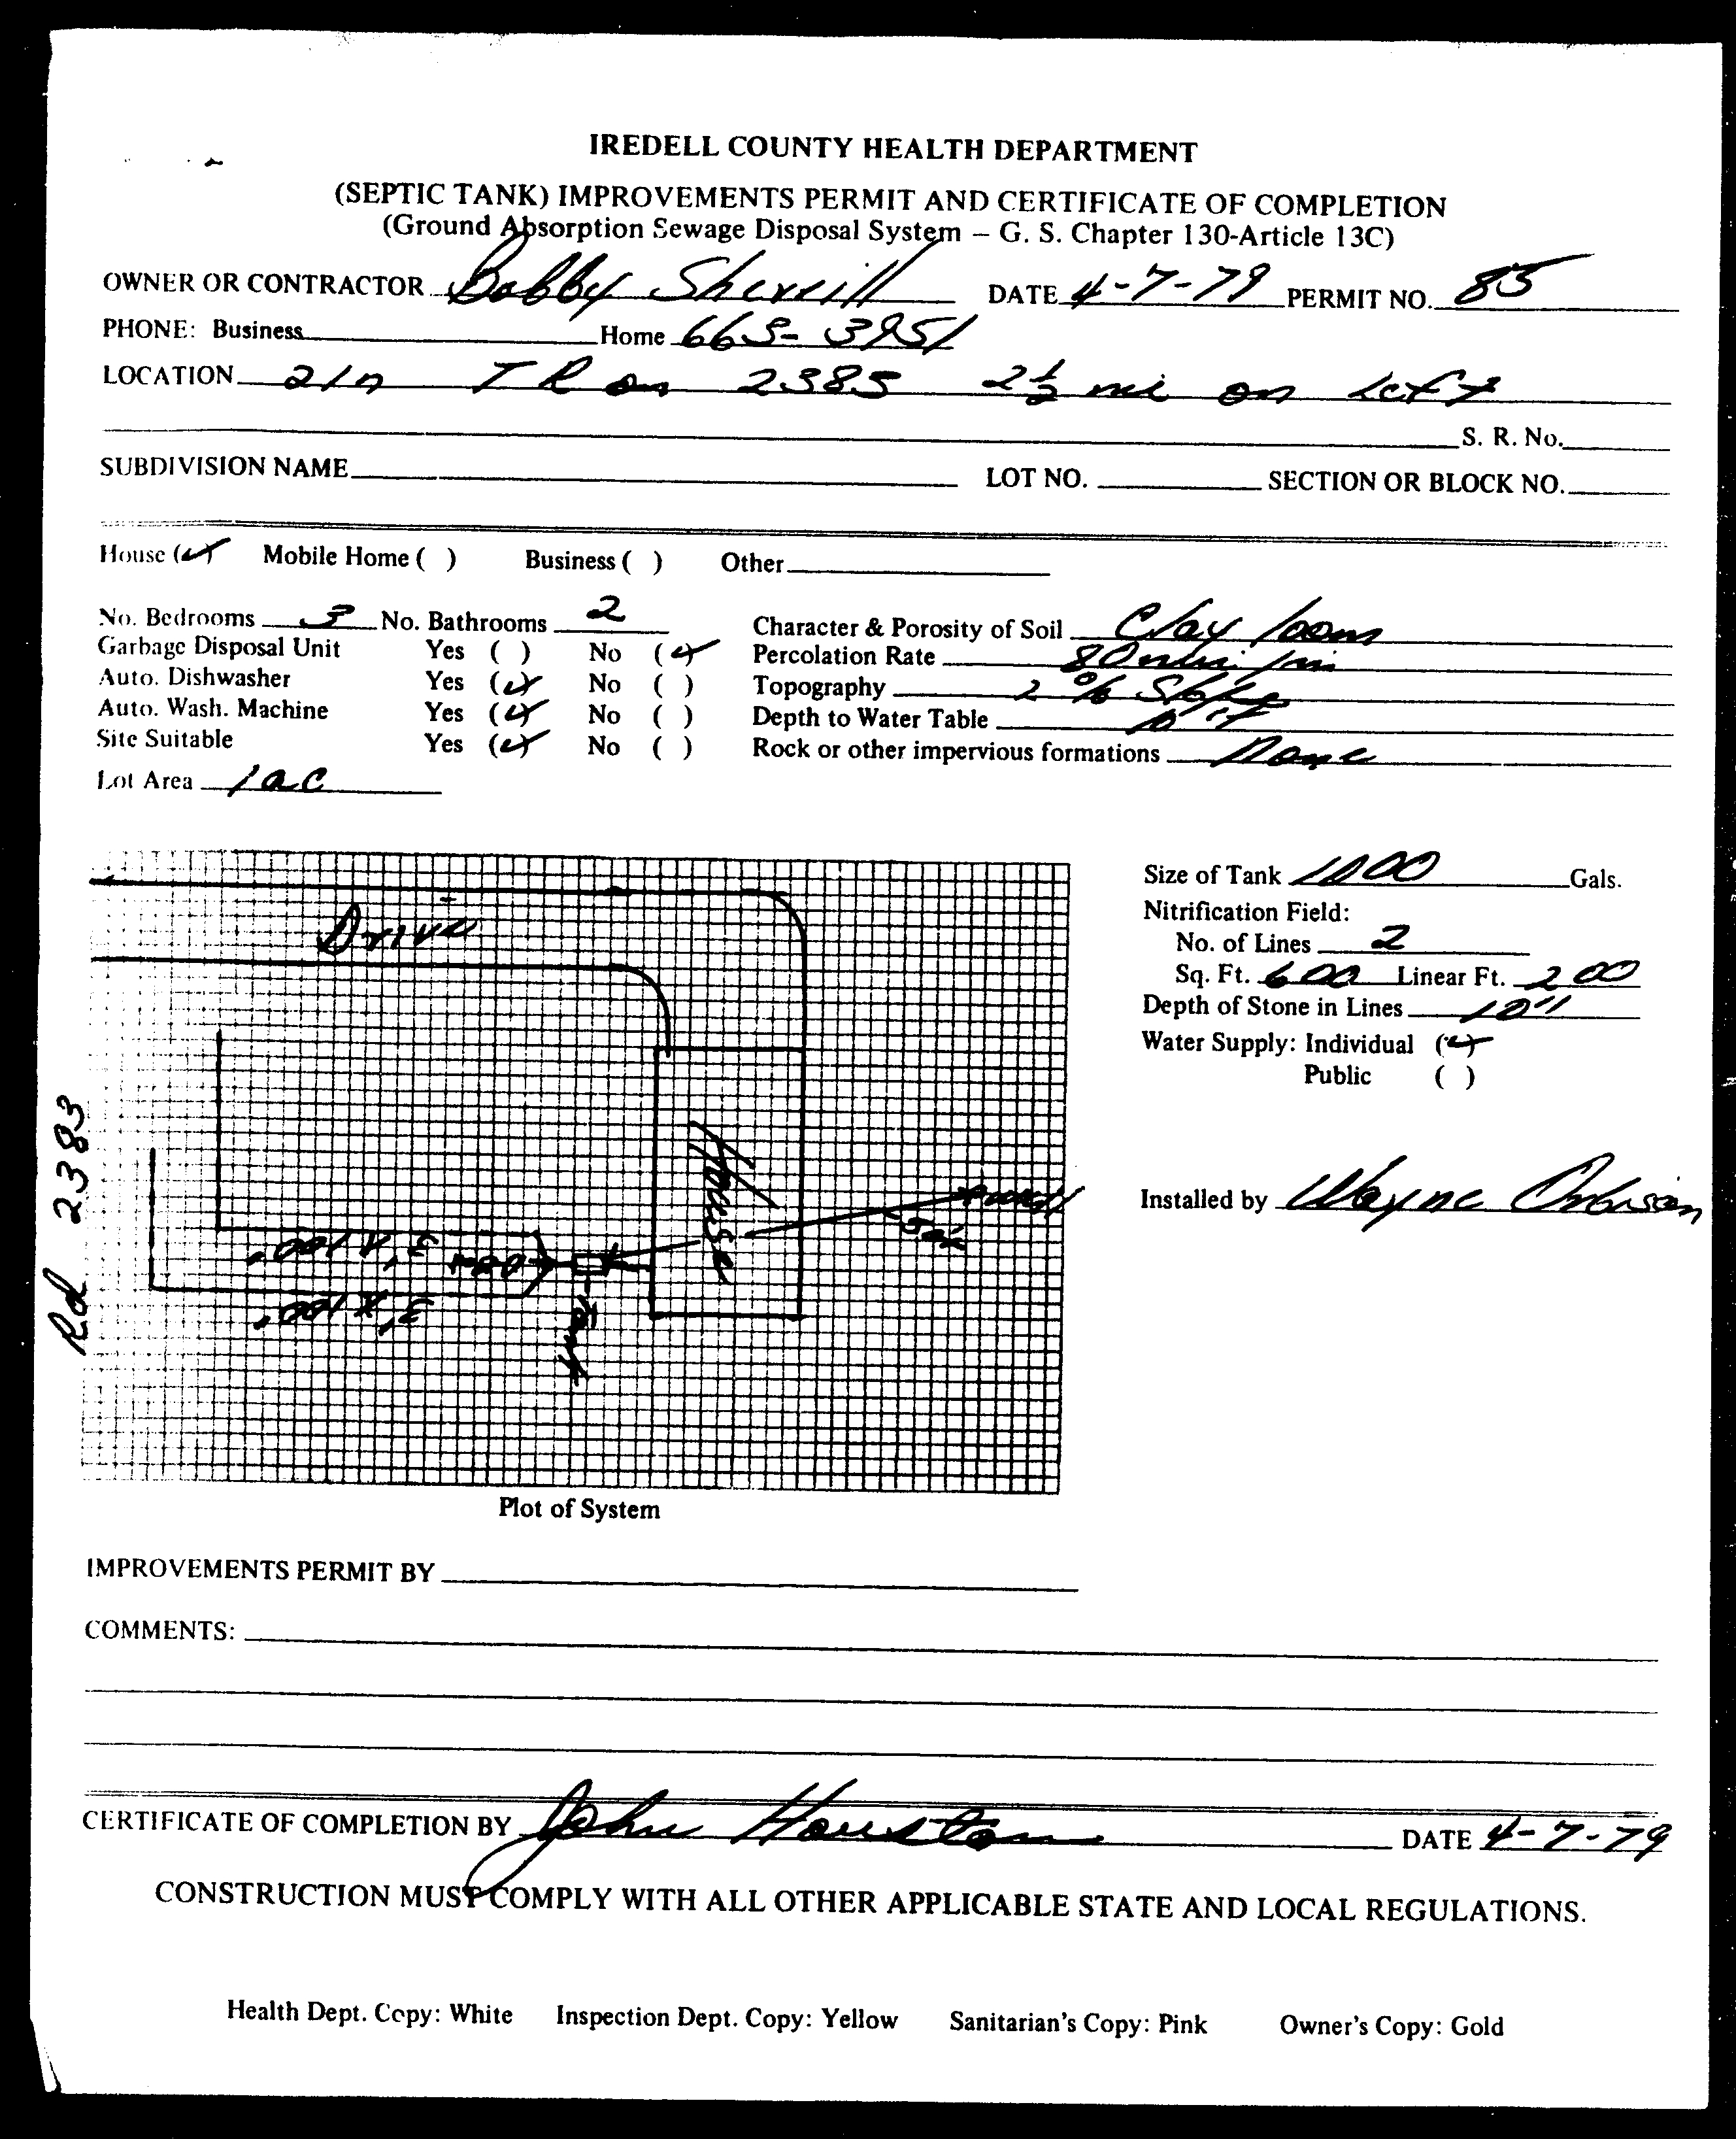 IREDELL COUNTY HEALTH DEPARTMENT
(SEPTIC TANK) IMPROVEMENTS PERMIT AND CERTIFICATE OF COMPLETION
(Ground Absorption Sewage Disposal System – G. S. Chapter 130-Article 13C)
OWNER OR CONTRACTOR Bobby Sherrill DATE 4-7-79 PERMIT NO. 85
PHONE: Business Home 663-3951
LOCATION 21n T R on 2385 2½ mi on left
S. R. No.
SUBDIVISION NAME LOT NO. SECTION OR BLOCK NO.
House (✓) Mobile Home ( ) Business ( ) Other
No. Bedrooms 3 No. Bathrooms 2 Character & Porosity of Soil Clay loam
Garbage Disposal Unit Yes ( ) No (✓) Percolation Rate 80
Auto. Dishwasher Yes (✓) No ( ) Topography 2 % Slope
Auto. Wash. Machine Yes (✓) No ( ) Depth to Water Table
Site Suitable Yes (✓) No ( ) Rock or other impervious formations None
Lot Area 1 ac
Size of Tank 1000 Gals.
Nitrification Field:
No. of Lines 2
Sq. Ft. 600 Linear Ft. 200
Depth of Stone in Lines 10"
Water Supply: Individual (✓)
Public ( )
Installed by Wayne
Drive
Rd 2383
House
Well
3' x 100'
3' x 100'
Tank
Plot of System
IMPROVEMENTS PERMIT BY
COMMENTS:
CERTIFICATE OF COMPLETION BY John Houston DATE 4-7-79
CONSTRUCTION MUST COMPLY WITH ALL OTHER APPLICABLE STATE AND LOCAL REGULATIONS.
Health Dept. Copy: White Inspection Dept. Copy: Yellow Sanitarian's Copy: Pink Owner's Copy: Gold